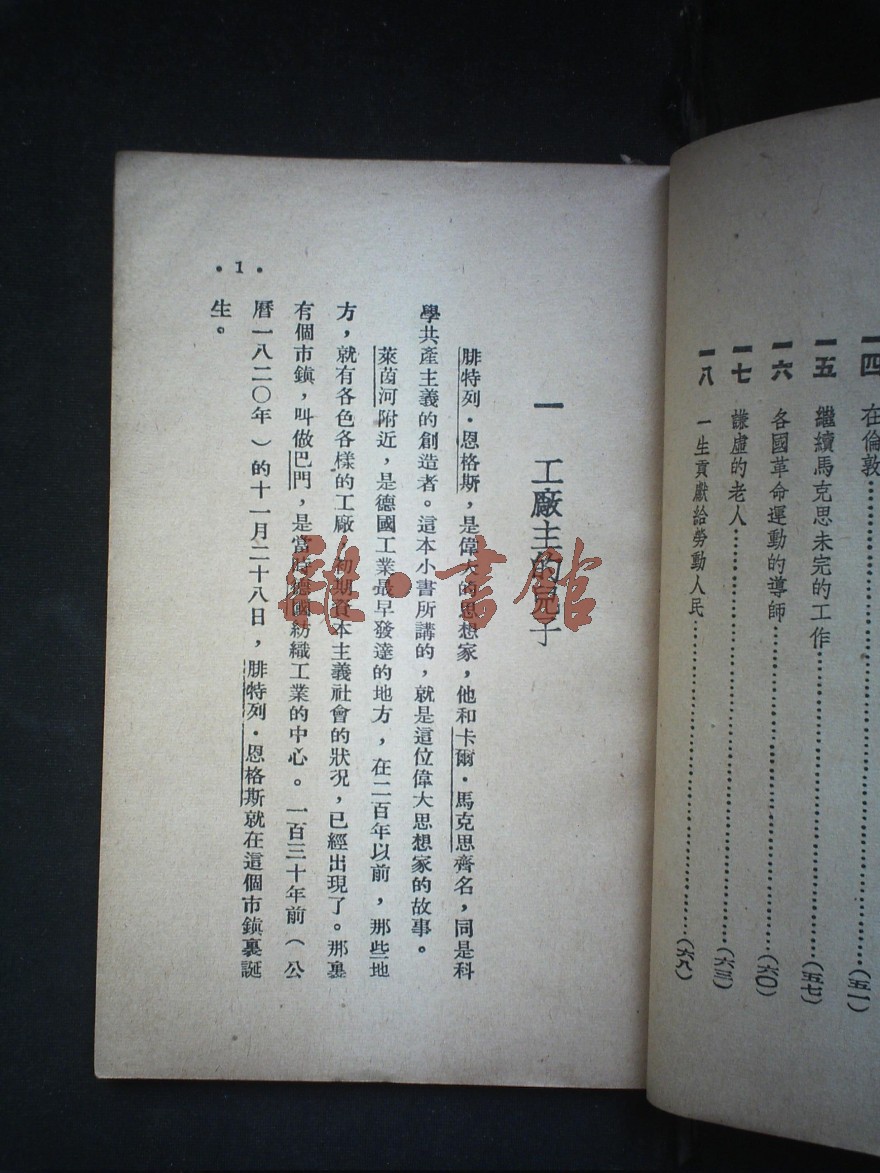 一四 在倫敦……(五一)
一五 繼續馬克思未完的工作……(五七)
一六 各國革命運動的導師……(六〇)
一七 謙虛的老人……(六三)
一八 一生貢獻給勞動人民……(六八)
一 工廠主的兒子
腓特列·恩格斯，是偉大的思想家，他和卡爾·馬克思齊名，同是科
學共產主義的創造者。這本小書所講的，就是這位偉大思想家的故事。
萊茵河附近，是德國工業最早發達的地方，在二百年以前，那些地
方，就有各色各樣的工廠，初期資本主義社會的狀況，已經出現了。那裏
有個市鎮，叫做巴門，是當時德國紡織工業的中心。一百三十年前（公
曆一八二〇年）的十一月二十八日，腓特列·恩格斯就在這個市鎮裏誕
生。
·1·
雜·書館